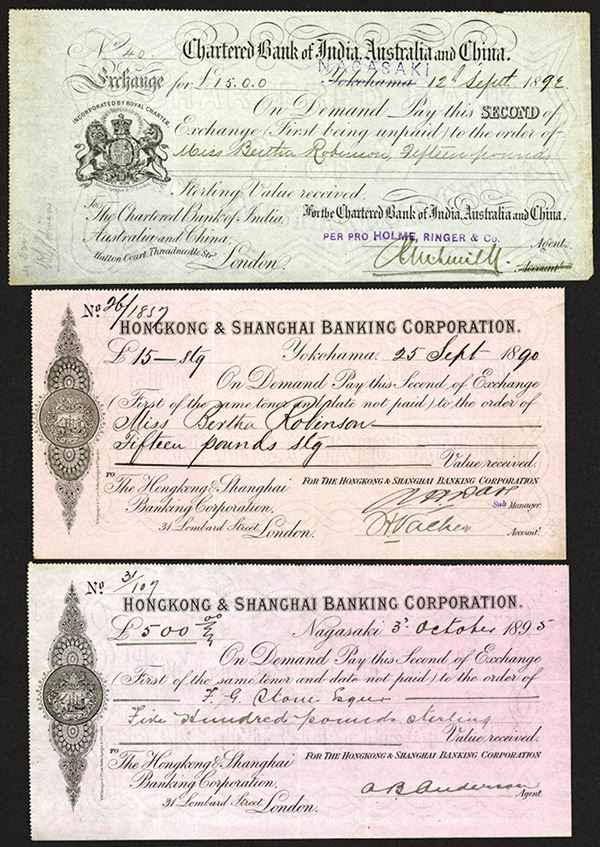 No. 40.
Chartered Bank of India, Australia and China.
NAGASAKI
Exchange for £15.0.0 Yokohama 12th Sept. 1892
INCORPORATED BY ROYAL CHARTER
On Demand Pay this SECOND of
Exchange (First being unpaid) to the order of
Miss Bertha Robinson, Fifteen pounds
Sterling Value received.
To
The Chartered Bank of India
Australia and China,
Hatton Court, Threadneedle Str.
London.
For the Chartered Bank of India, Australia and China.
PER PRO HOLME, RINGER & Co.
Agent.
Account.t
No. 26/1857
HONGKONG & SHANGHAI BANKING CORPORATION.
£15 — stg Yokohama. 25 Sept 1890
On Demand Pay this Second of Exchange
(First of the same tenor and date not paid) to the order of
Miss Bertha Robinson
Fifteen pounds stg
Value received.
TO
The Hongkong & Shanghai
Banking Corporation.
31 Lombard Street, London.
FOR THE HONGKONG & SHANGHAI BANKING CORPORATION
Sub Manager.
Account.t
No. 3/107
HONGKONG & SHANGHAI BANKING CORPORATION.
£500 Nagasaki 3d October 1895
On Demand Pay this Second of Exchange
(First of the same tenor and date not paid) to the order of
F. G. Stone Esqre
Five Hundred pounds sterling
Value received.
TO
The Hongkong & Shanghai
Banking Corporation.
31 Lombard Street, London.
FOR THE HONGKONG & SHANGHAI BANKING CORPORATION
A B Anderson
Agent